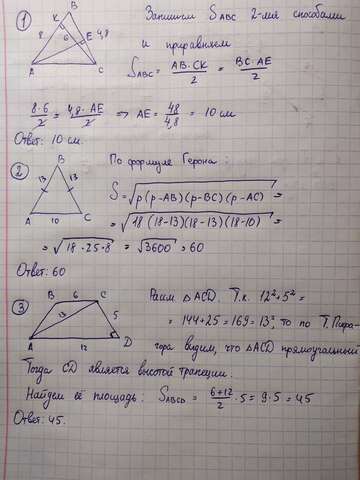 1
B
K
8
6
E
4,8
A
C
Запишем S ABC 2-мя способами
и приравняем
S ABC = AB·CK / 2 = BC·AE / 2
8·6 / 2 = 4,8·AE / 2 => AE = 48 / 4,8 = 10 см
Ответ: 10 см.
2
B
13
13
A
10
C
По формуле Герона:
S = √p(p-AB)(p-BC)(p-AC) =
= √18(18-13)(18-13)(18-10) =
= √18·25·8 = √3600 = 60
Ответ: 60
3
B
6
C
13
5
A
12
D
Рассм. △ACD. Т.к. 12²+5² =
= 144+25=169=13², то по т. Пифа-
гора видим, что △ACD прямоугольный
Тогда CD является высотой трапеции.
Найдем её площадь: S ABCD = 6+12 / 2 · 5 = 9·5 = 45
Ответ: 45.